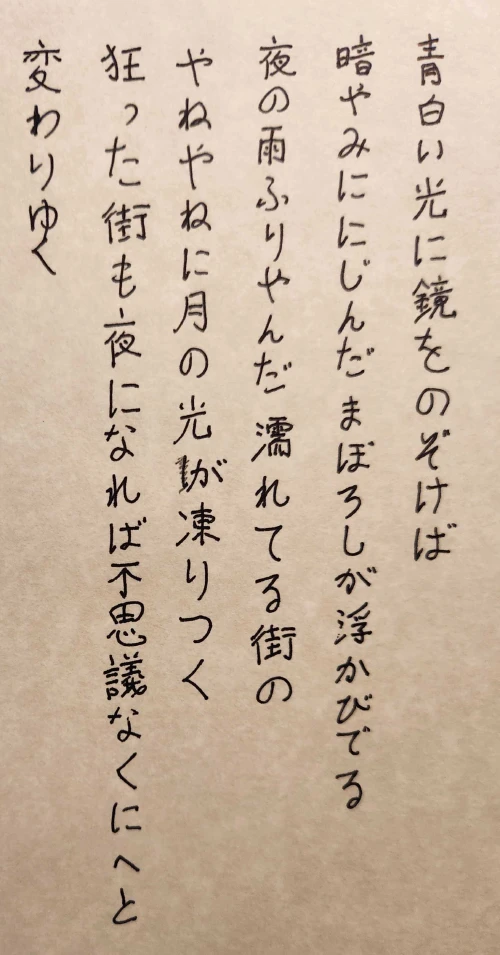 青白い光に鏡をのぞけば
暗やみににじんだまぼろしが浮かびでる
夜の雨ふりやんだ濡れてる街の
やねやねに月の光が凍りつく
狂った街も夜になれば不思議なくにへと
変わりゆく